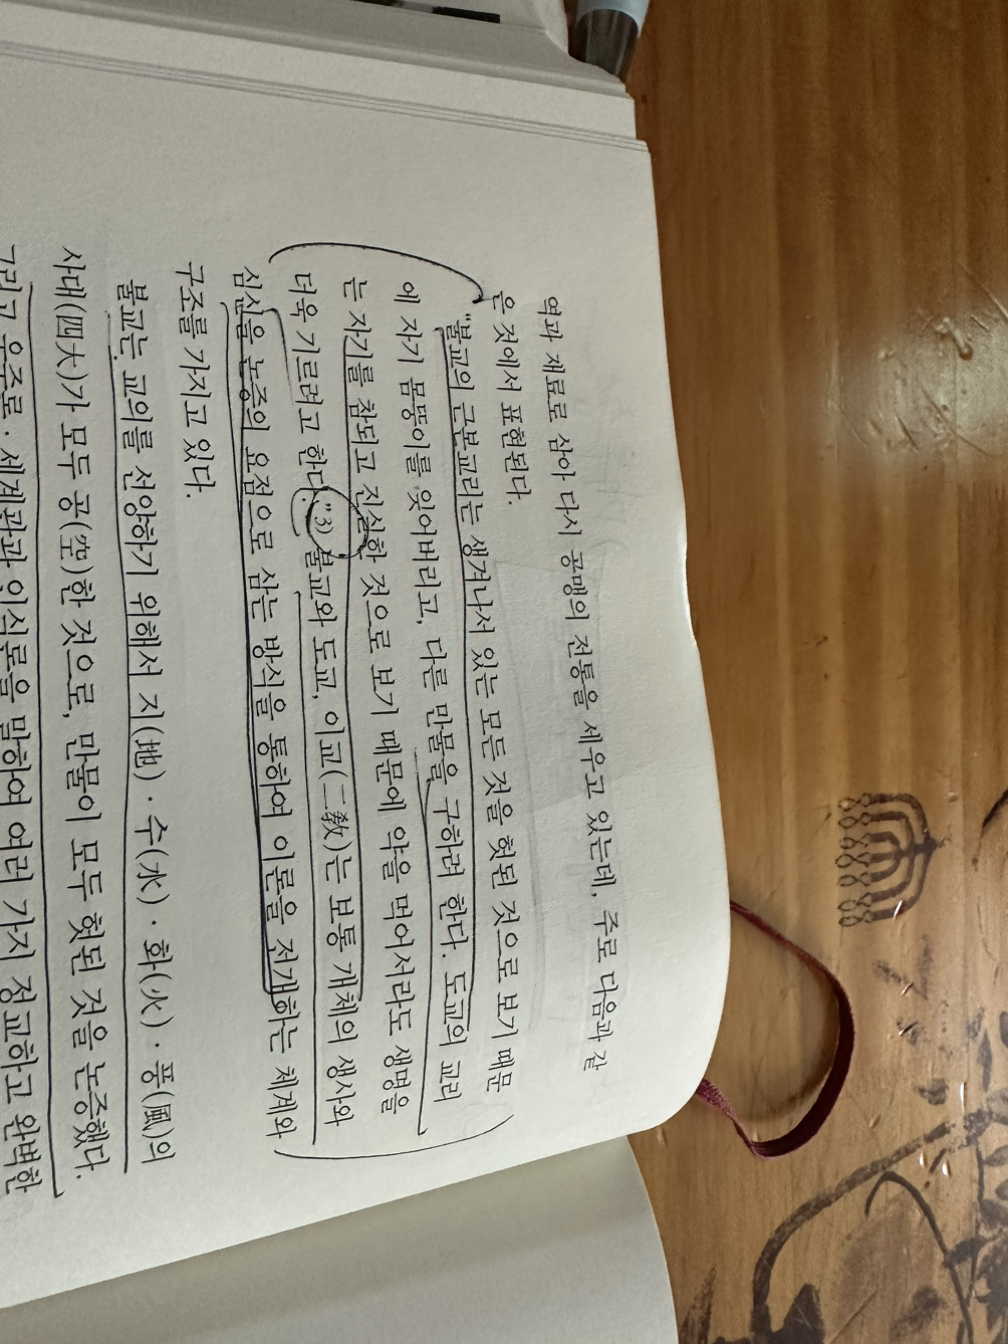 역과 재료로 삼아 다시 공맹의 전통을 세우고 있는데, 주로 다음과 같
은 것에서 표현된다.
"불교의 근본교리는 생겨나서 있는 모든 것을 헛된 것으로 보기 때문
에 자기 몸뚱이를 잊어버리고, 다른 만물을 구하려 한다. 도교의 교리
는 자기를 참되고 진실한 것으로 보기 때문에 약을 먹어서라도 생명을
더욱 기르려고 한다."3) 불교와 도교, 이교(二敎)는 보통 개체의 생사와
심신을 논증의 요점으로 삼는 방식을 통하여 이론을 전개하는 체계와
구조를 가지고 있다.
불교는 교의를 선양하기 위해서 지(地)·수(水)·화(火)·풍(風)의
사대(四大)가 모두 공(空)한 것으로, 만물이 모두 헛된 것을 논증했다.
그리고 우주론·세계관과 인식론을 말하여 여러 가지 정교하고 완벽한